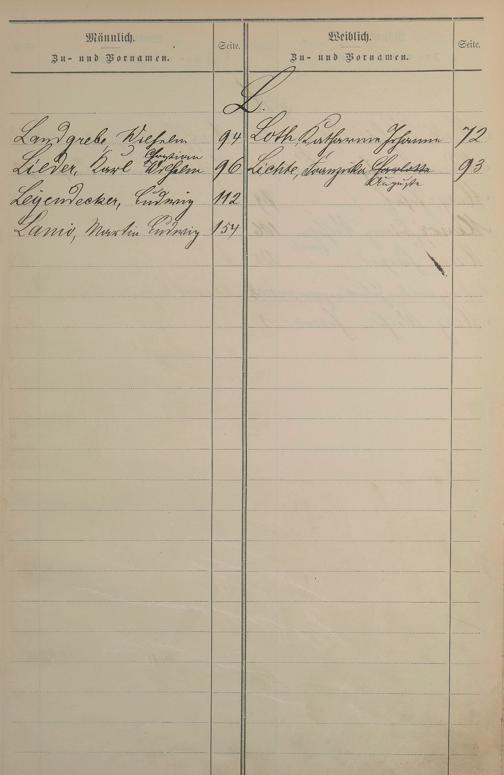 Männlich.
Zu- und Vornamen.
Seite.
Weiblich.
Zu- und Vornamen.
Seite.
L.
Landgrebe, Wilhelm 94
Christian
Lieder, Karl Wilhelm 96
Leyendecker, Ludwig 112
Lamio, Martin Ludwig 154
Loth, Katharine Johanne 72
Lichte, Franziska Charlotte 93
Auguste